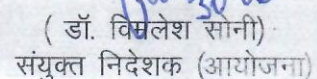 ( डॉ. विमलेश सोनी)
संयुक्त निदेशक (आयोजना)